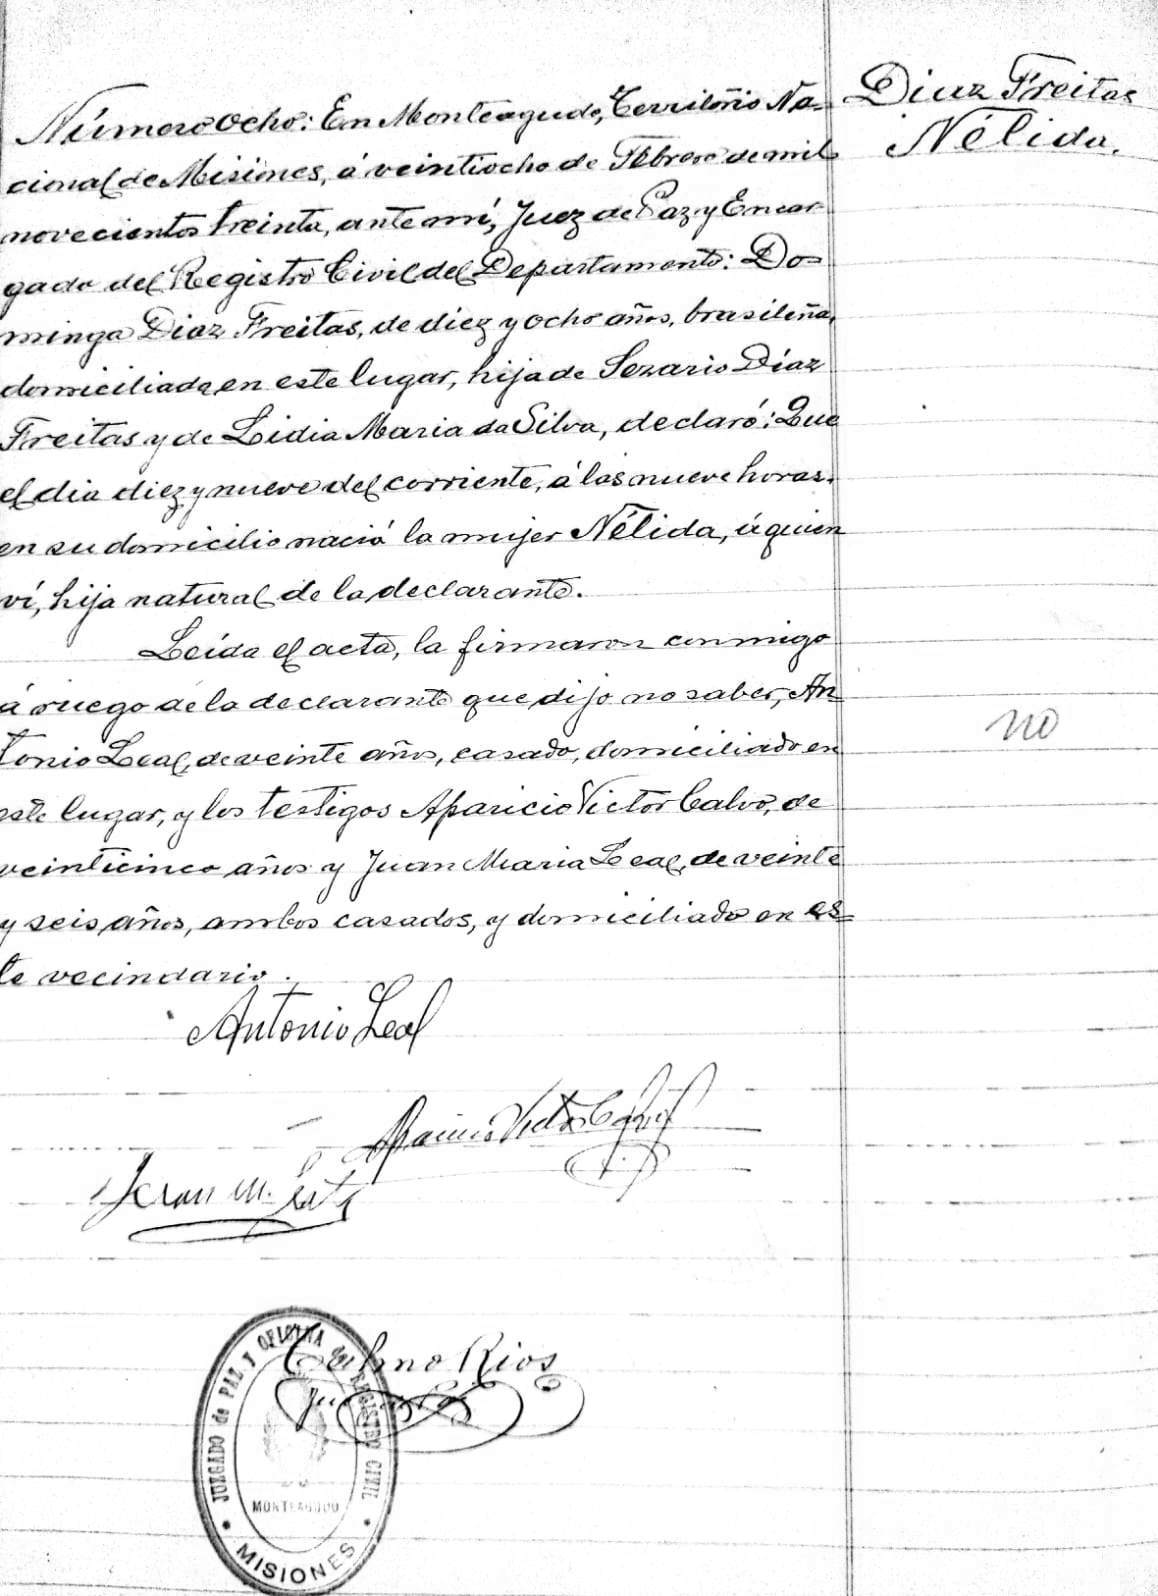 Diaz Freitas
Nélida.
Número ocho: En Monteagudo, Territorio Na-
cional de Misiones, á veintiocho de Febrero de mil
novecientos treinta, ante mí, Juez de Paz y Encar-
gado del Registro Civil del Departamento: Do-
minga Diaz Freitas, de diez y ocho años, brasileña,
domiciliada en este lugar, hija de Sezario Díaz
Freitas y de Lidia Maria da Silva, declaró: Que
el dia diez y nueve del corriente, á las nueve horas,
en su domicilio nació la mujer Nélida, á quien
ví, hija natural de la declarante.
Leída el acta, la firmaron conmigo
á ruego de la declarante que dijo no saber, An-
tonio Leal, de veinte años, casado, domiciliado en
este lugar, y los testigos Aparicio Victor Calvo, de
veinticinco años y Juan Maria Leal, de veinte
y seis años, ambos casados, y domiciliado en es-
te vecindario.
no
Antonio Leal
Aparicio Victor Calvo
Juan M.
Rios
JUZGADO de PAZ Y OFICINA del REGISTRO CIVIL
MONTEAGUDO
MISIONES